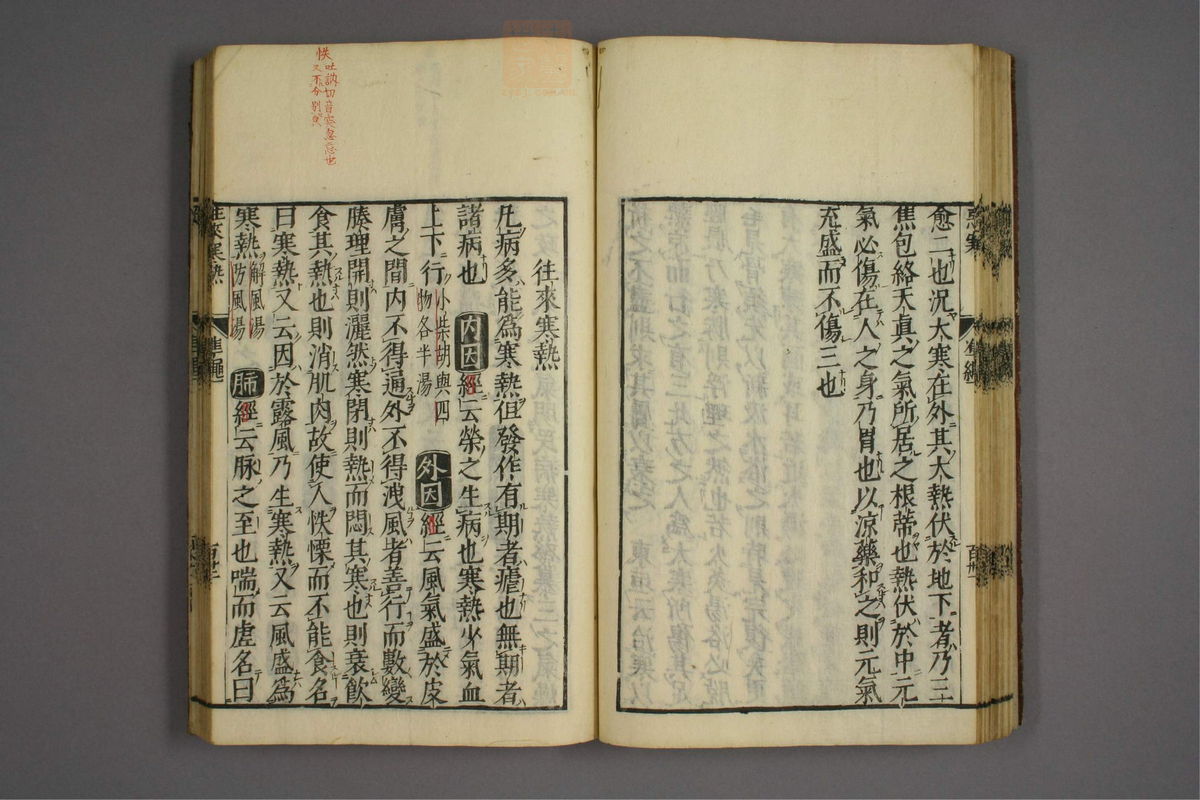 愈二也況大寒在外其大熱伏於地下者乃三
焦包絡天真之氣所居之根蒂也熱伏於中元
氣必傷在人之身乃胃也以涼藥和之則元氣
充盛而不傷三也
往來寒熱
凡病多能為寒熱但發作有期者瘧也無期者
諸病也 內因 經云榮之生病也寒熱少氣血
上下行 小柴胡與四物各半湯 外因 經云風氣盛於皮
膚之間內不得通外不得洩風者善行而數變
腠理開則灑然寒閉則熱而悶其寒也則衰飲
食其熱也則消肌肉故使人怢慄而不能食名
曰寒熱又云因於露風乃生寒熱又云風盛為
寒熱 解風湯 防風湯 肺 經云脉之至也喘而虛名曰
怢吐訥切音
忽忘也
又不分別皃
往來寒熱
準繩